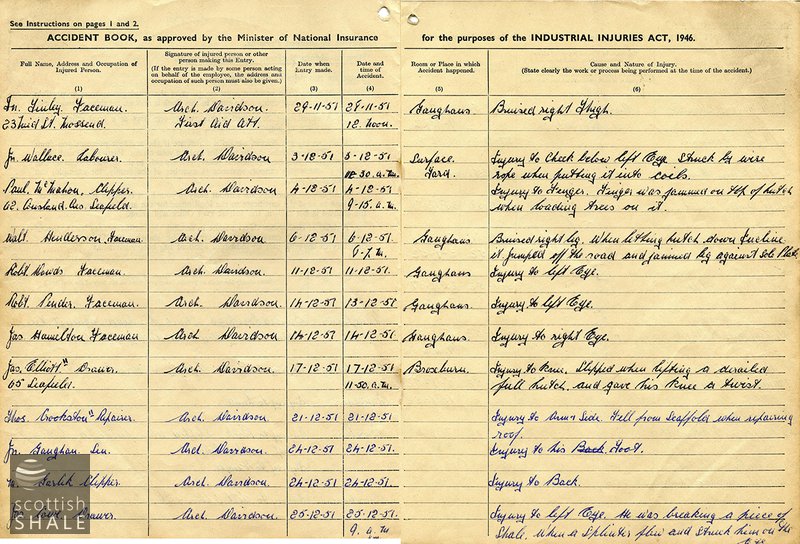 See Instructions on pages 1 and 2.
ACCIDENT BOOK, as approved by the Minister of National Insurance for the purposes of the INDUSTRIAL INJURIES ACT, 1946.
Full Name, Address and Occupation of Injured Person.
Signature of injured person or other person making this Entry.
(If the entry is made by some person acting on behalf of the employee, the address and occupation of such person must also be given.)
Date when Entry made.
Date and time of Accident.
Room or Place in which Accident happened.
Cause and Nature of Injury.
(State clearly the work or process being performed at the time of the accident.)
(1) (2) (3) (4) (5) (6)
Jn. Finley, Faceman. Arch. Davidson. 29-11-51 29-11-51 Gaughans. Bruised right Thigh.
23 Mid St. Mossend. First Aid Att. 12. noon.
Jn. Wallace. Labourer. Arch. Davidson 3-12-51 3-12-51 Surface. Injury to Cheek below left Eye. Struck by wire
12.30. a.m. Yard. rope when putting it into coils.
Paul. McMahon, Clipper. Arch. Davidson. 4-12-51 4-12-51 Injury to Finger. Finger was jammed on top of hutch
62. Seafield. 9-15. a.m. when loading trees on it.
Walt. Henderson, Arch. Davidson 6-12-51 6-12-51. Gaughans Bruised right leg. When letting hutch down Incline
it jumped off the road and jammed leg against Sole Plate.
Robt Dowds Faceman. Arch. Davidson. 11-12-51 11-12-51. Gaughans Injury to left Eye.
Robt. Pender. Faceman. Arch. Davidson. 14-12-51 13-12-51. Gaughans. Injury to left Eye.
Jas Hamilton Faceman Arch. Davidson. 14-12-51 14-12-51. Gaughans. Injury to right Eye.
Jas. Elliott" Drawer. Arch. Davidson. 17-12-51 17-12-51 Broxburn. Injury to Knee. Slipped when lifting a derailed
65 Seafield. 11-50. a.m. full hutch, and gave his knee a twist.
Thos. Crookston" Repairer. Arch. Davidson 21-12-51 21-12-51. Injury to Arm & Side. Fell from Scaffold when repairing
roof.
Jn. Gaughan. Sen. Arch. Davidson. 24-12-51 24-12-51. Injury to his Back. Foot.
Clipper. Arch. Davidson. 24-12-51 24-12-51. Injury to Back.
Drawer. Arch. Davidson. 25-12-51 25-12-51 Injury to left Eye. He was breaking a piece of
9. a.m Shale, when a Splinter flew and Struck him on the
scottish
SHALE